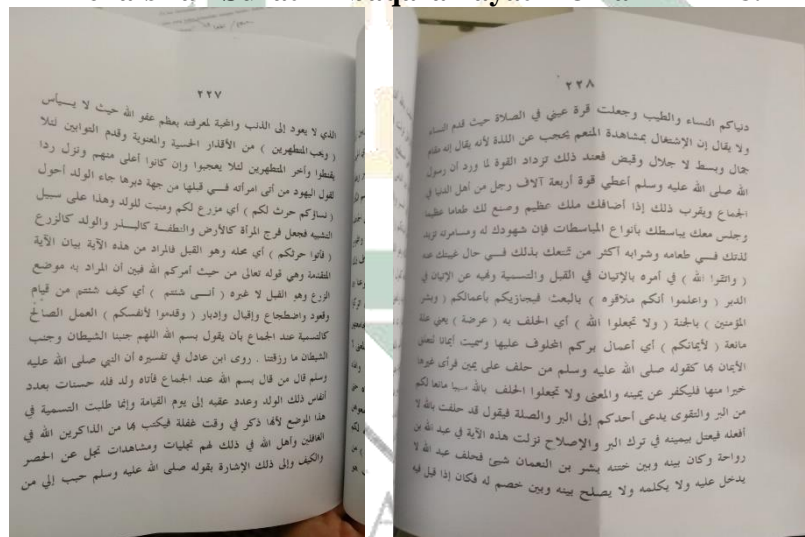 ٢٢٧
الذي لا يعود إلى الذنب والمحبة لمعرفته بعظم عفو الله حيث لا ييأس
( ويحب المتطهرين ) من الأقذار الحسية والمعنوية وقدم التوابين لئلا
يقنطوا وأخر المتطهرين لئلا يعجبوا وإن كانوا أعلى منهم ونزل ردا
لقول اليهود من أتى امرأته فـــي قبلها من جهة دبرها جاء الولد أحول
( نساؤكم حرث لكم ) أي مزرع لكم ومنبت للولد وهذا على سبيل
التشبيه فجعل فرج المرأة كالأرض والنطفـــة كالبـــذر والولد كالزرع
( فأتوا حرثكم ) أي محله وهو القبل فالمراد من هذه الآية بيان الآية
المتقدمة وهي قوله تعالى من حيث أمركم الله فبين أن المراد به موضع
الزرع وهو القبل لا غيره ( أنـــى شئتم ) أي كيف شئتم من قيام
وقعود واضطجاع وإقبال وإدبار ( وقدموا لأنفسكم ) العمل الصالح
كالتسمية عند الجماع بأن يقول بسم الله اللهم جنبنا الشيطان وجنب
الشيطان ما رزقتنا . روى ابن عادل في تفسيره أن النبي صلى الله عليه
وسلم قال من قال بسم الله عند الجماع فأتاه ولد فله حسنات بعدد
أنفاس ذلك الولد وعدد عقبه إلى يوم القيامة وإنما طلبت التسمية في
هذا الموضع لأنها ذكر في وقت غفلة فيكتب بها من الذاكرين الله في
الغافلين وأهل الله في ذلك لهم تجليات ومشاهدات تجل عن الحصر
والكيف وإلى ذلك الإشارة بقوله صلى الله عليه وسلم حبب إلي من
٢٢٨
دنياكم النساء والطيب وجعلت قرة عيني في الصلاة حيث قدم النساء
ولا يقال إن الإشتغال بمشاهدة المنعم يحجب عن اللذة لأنه يقال إنه مقام
جمال وبسط لا جلال وقبض فعند ذلك تزداد القوة لما ورد أن رسول
الله صلى الله عليه وسلم أعطي قوة أربعة آلاف رجل من أهل الدنيا في
الجماع ويقرب ذلك إذا أضافك ملك عظيم وصنع لك طعاما عظيما
وجلس معك يباسطك بأنواع المباسطات فإن شهودك له ومسامرته تزيد
لذتك فـــي طعامه وشرابه أكثر من تمتعك بذلك فـــي حال غيبتك عنه
( واتقوا الله ) في أمره بالإتيان في القبل والتسمية ونهيه عن الإتيان في
الدبر ( واعلموا أنكم ملاقوه ) بالبعث فيجازيكم بأعمالكم ( وبشر
المؤمنين ) بالجنة ( ولا تجعلوا الله ) أي الحلف به ( عرضة ) يعني علة
مانعة ( لأيمانكم ) أي أعمال بركم المحلوف عليها وسميت أيمانا لتعلق
الأيمان بها كقوله صلى الله عليه وسلم من حلف على يمين فرأى غيرها
خيرا منها فليكفر عن يمينه والمعنى ولا تجعلوا الحلف بالله سببا مانعا لكم
من البر والتقوى يدعى أحدكم إلى البر والصلة فيقول قد حلفت بالله لا
أفعله فيعتل بيمينه في ترك البر والإصلاح نزلت هذه الآية في عبد الله بن
رواحة وكان بينه وبين ختنه بشر بن النعمان شيئ فحلف عبد الله لا
يدخل عليه ولا يكلمه ولا يصلح بينه وبين خصم له فكان إذا قيل فيه